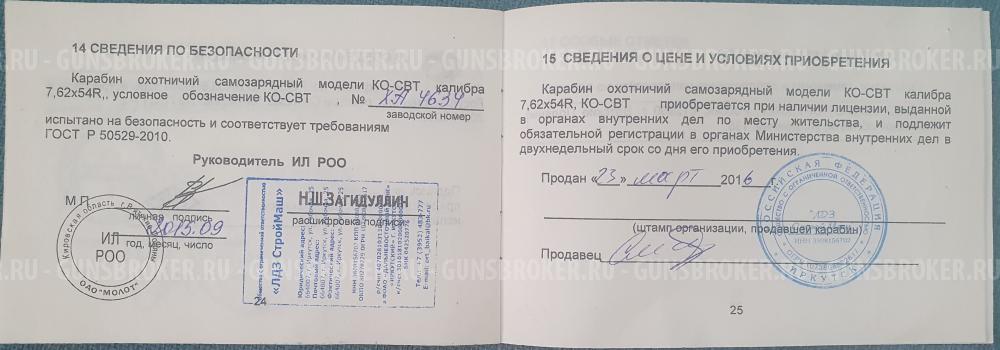 GUNSBROKER.RU - GUNSBROKER.RU - GUNSBROKER.RU
14 СВЕДЕНИЯ ПО БЕЗОПАСНОСТИ
Карабин охотничий самозарядный модели КО-СВТ калибра
7,62х54R,, условное обозначение КО-СВТ , № ХА 4634
заводской номер
испытано на безопасность и соответствует требованиям
ГОСТ Р 50529-2010.
Руководитель ИЛ РОО
М.П.
личная подпись
2015.09
год, месяц, число
Кировская область
ИЛ
РОО
ОАО "МОЛОТ"
Н.Ш.ЗАГИДУЛЛИН
расшифровка подписи
Общество с ограниченной ответственностью
«ЛДЗ СтройМаш»
Юридический адрес:
Почтовый адрес:
Фактический адрес:
24
15 СВЕДЕНИЯ О ЦЕНЕ И УСЛОВИЯХ ПРИОБРЕТЕНИЯ
Карабин охотничий самозарядный модели КО-СВТ калибра
7,62х54R, КО-СВТ приобретается при наличии лицензии, выданной
в органах внутренних дел по месту жительства, и подлежит
обязательной регистрации в органах Министерства внутренних дел в
двухнедельный срок со дня его приобретения.
Продан «23» март 2016 г.
(штамп организации, продавшей карабин)
Продавец
РОССИЙСКАЯ ФЕДЕРАЦИЯ
ОБЩЕСТВО С ОГРАНИЧЕННОЙ ОТВЕТСТВЕННОСТЬЮ
"ЛДЗ
ИРКУТСК
25